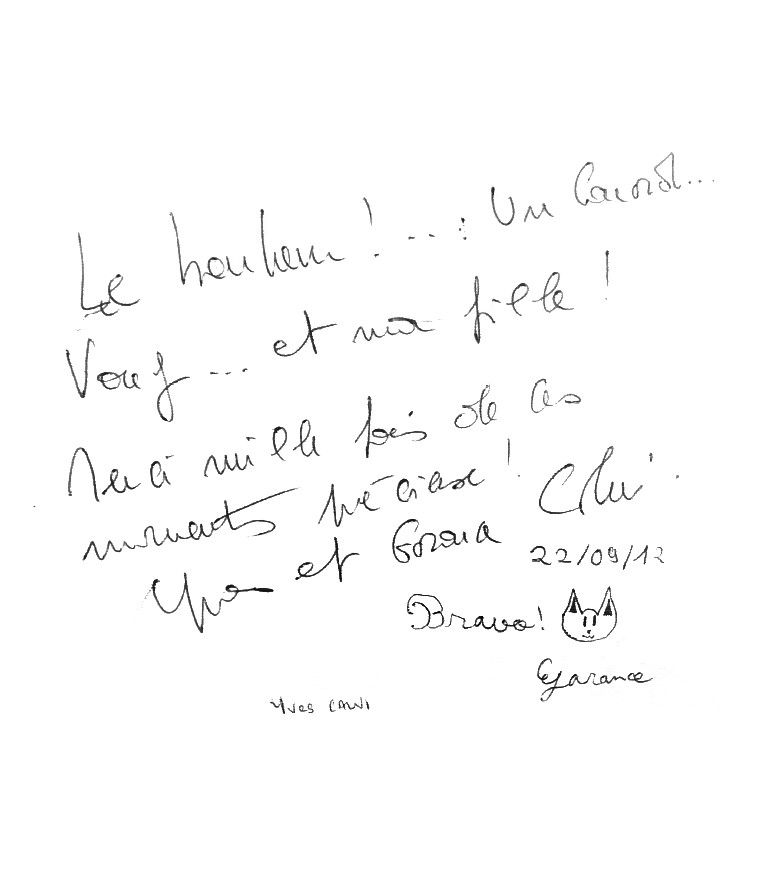 Le bonheur !... : Un Canard...
Vous ... et ma fille !
Merci mille fois de ces
moments précieux ! Calvi.
Yves et Garance
22/09/12
Bravo!
Garance
Yves CALVI